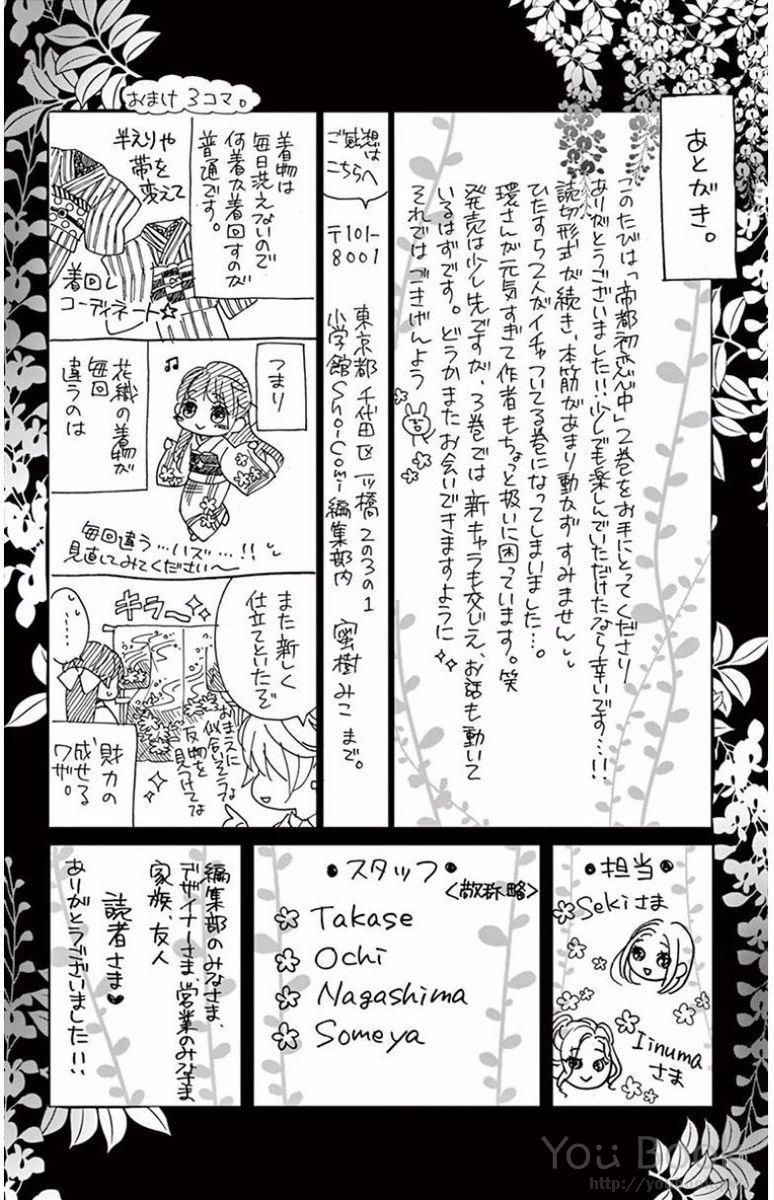 あとがき。
このたびは「帝都初恋心中」2巻をお手にとってくださり
ありがとうございました!!少しでも楽しんでいただけたなら幸いです…!!
読切形式が続き、本筋があまり動かずすみません
ひたすら2人がイチャついてる巻になってしまいました…。
環さんが元気すぎて作者もちょっと扱いに困っています。笑
発売は少し先ですが、3巻では新キャラも交じえ、お話も動いて
いるはずです。どうかまたお会いできますように
それではごきげんよう
ご感想は
こちらへ
〒101-
8001
東京都千代田区一ツ橋2の3の1
小学館Sho-Comi編集部内
蜜樹みこ まで。
おまけ3コマ。
着物は
毎日洗えないので
何着か着回すのが
普通です。
半えりや
帯を
変えて
着回し
コーディネート☆
つまり
♪
花織の着物が
毎回
違うのは
毎回違う…ハズ…!!
見直してみてください〜
また新しく
仕立てといたぞ
おまえに
似合いそうな
反物を
見つけてな
キラーン
……
財力の
成せる
ワザ。
•担当•
Sekiさま
Iinuma
さま
•スタッフ•
<敬称略>
Takase
Ochi
Nagashima
Someya
編集部のみなさま、
デザイナーさま、営業のみなさま
家族、友人
読者さま♥
ありがとうございました!!
You Book